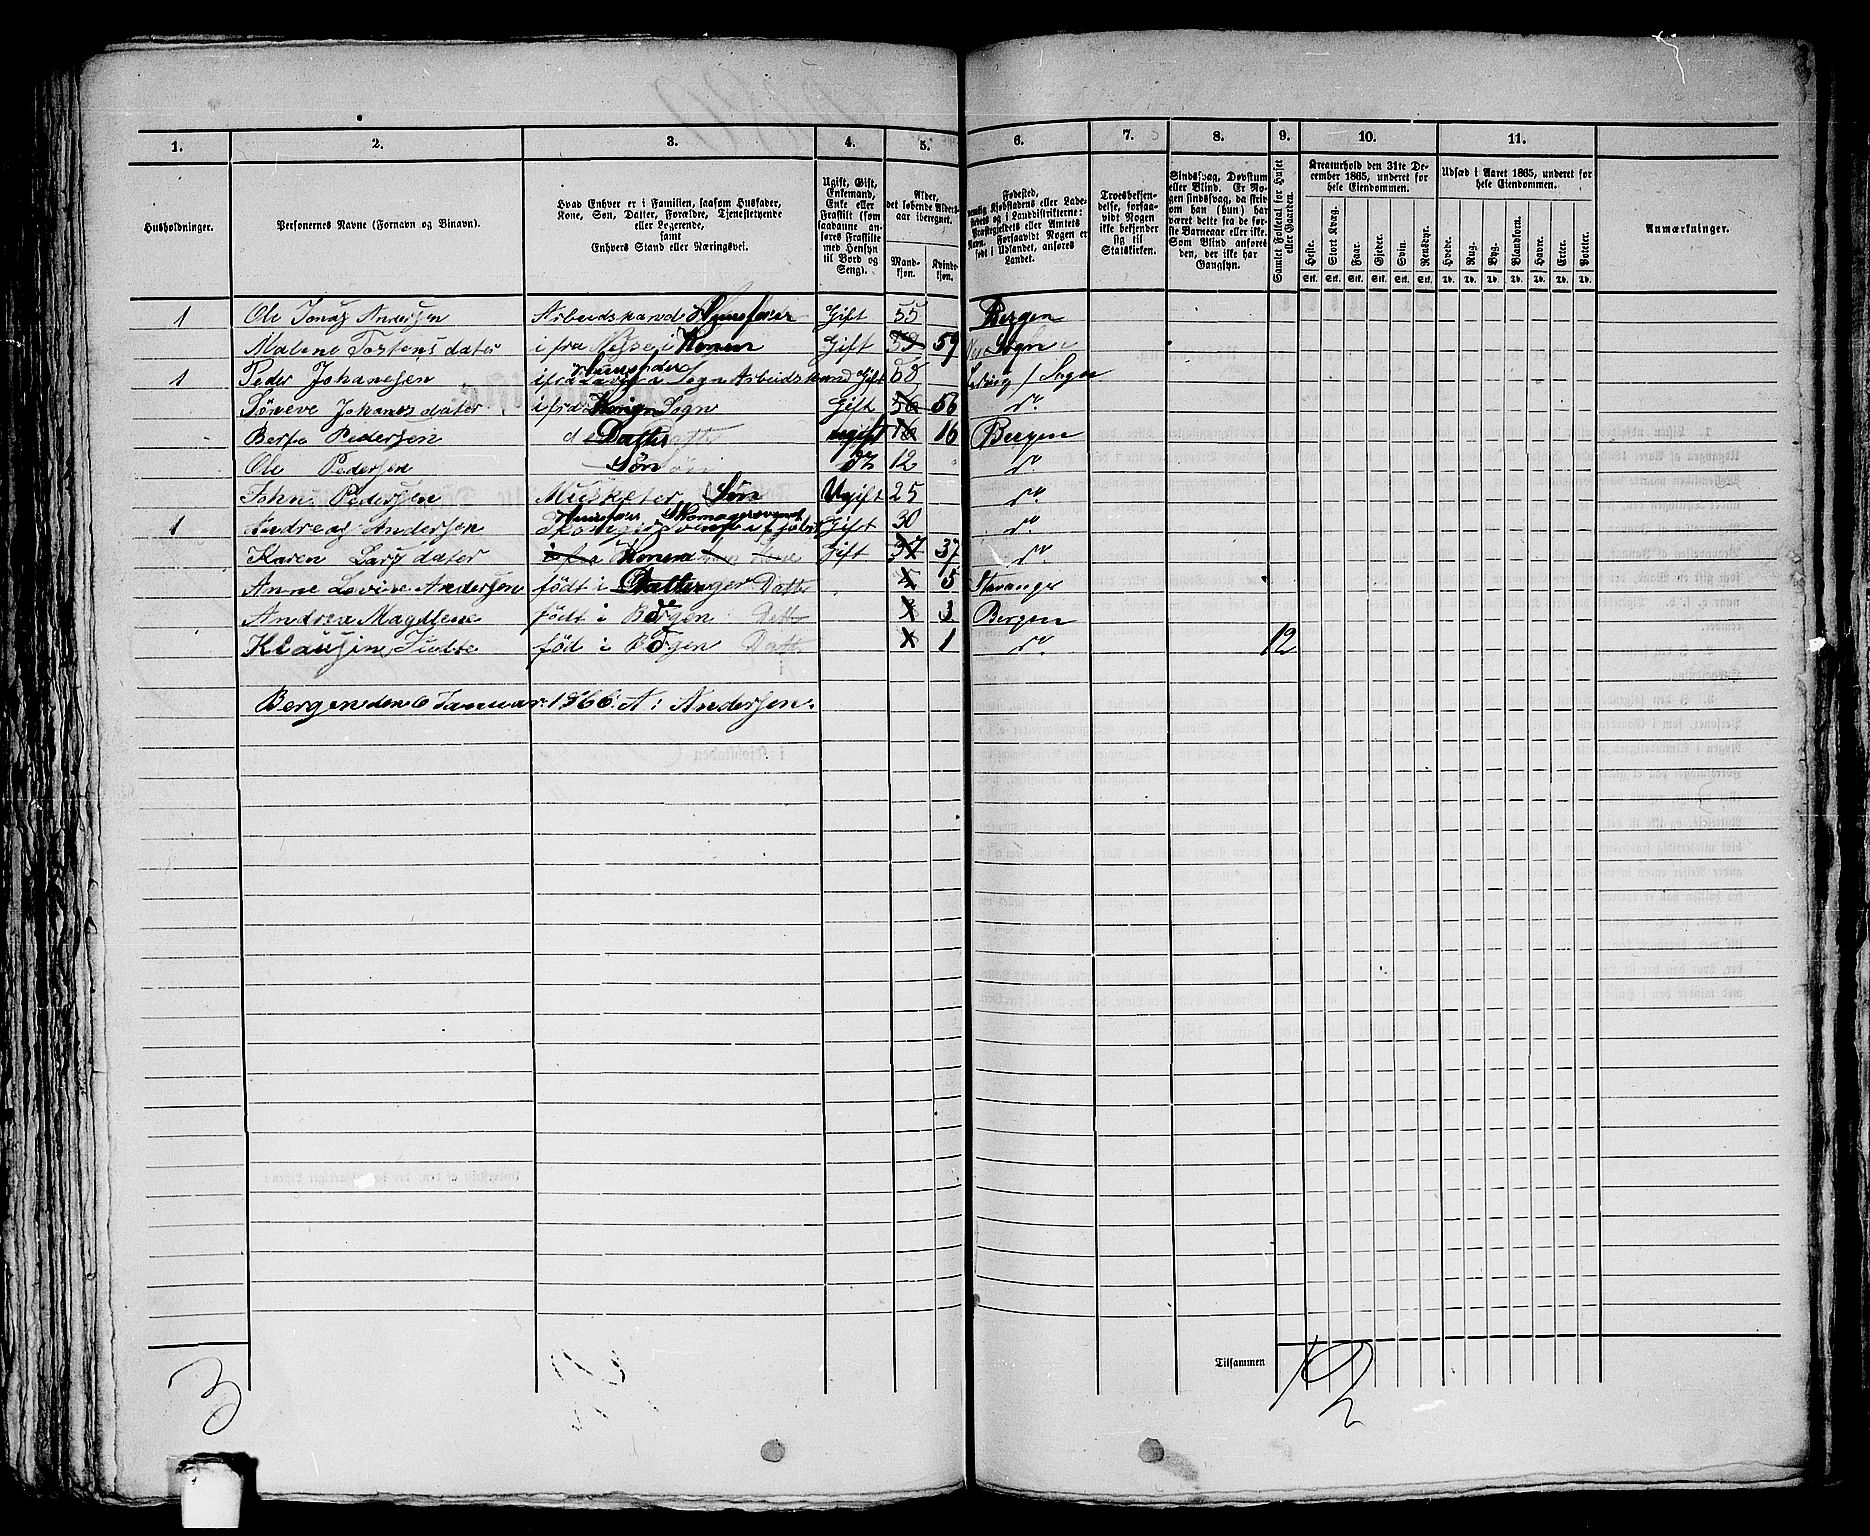 1. 2. 3. 4. 5. 6. 7. 8. 9. 10. 11.
Husholdninger.
Personernes Navne (Fornavn og Binavn).
Hvad Enhver er i Familien, saasom Husfader,
Kone, Søn, Datter, Forældre, Tjenestetyende
eller Logerende,
samt
Enhvers Stand eller Næringsvei.
Ugift, Gift,
Enkemand,
Enke eller
Fraskilt (som
saadanne an-
føres Fraskilte
med Hensyn
til Bord og
Seng).
Alder,
det løbende Alders-
aar iberegnet.
Mand-
kjøn.
Kvinde-
kjøn.
Fødested,
nemlig Kjøbstadens eller Lade-
stedets og i Landdistrikterne:
Præstegjeldets eller Amtets
Navn. Forsaavidt Nogen er
født i Udlandet, anføres
Landet.
Troesbekjen-
delse, forsaa-
vidt Nogen
ikke bekjender
sig til
Statskirken.
Sindssvag, Døvstum
eller Blind. Er No-
gen sindssvag, da skriv
om han (hun) har
været dette fra de før-
ste Barneaar eller ikke.
Som Blind anføres
den, der ikke har
Gangsyn.
Samlet Folketal for Huset
eller Gaarden.
Kreaturhold den 31te De-
cember 1865, underet for
hele Eiendommen.
Heste. Stort Kvæg. Faar. Gjeder. Svin. Rensdyr.
Stk. Stk. Stk. Stk. Stk. Stk.
Udsæd i Aaret 1865, underet for
hele Eiendommen.
Hvede. Rug. Byg. Blandkorn. Havre. Erter. Poteter.
Td. Td. Td. Td. Td. Td. Td.
Anmærkninger.
1 Ole Jonas Andersen Arbeidskarl Huusfader Gift 55 Bergen
Malene Tostensdater i fra Konen Gift 59 59 Sogn
1 Peder Johanesen ifra Huusfader i Sogn Arbeidskarl Gift 68 Sogn
Sønneve Johanesdater ifra Konen Sogn Gift 56 56 do
Berte Pedersen Datter ugift 16 16 Bergen
Ole Pedersen Søn do 12 do
Johan Pedersen Musketer Søn Ugift 25 do
1 Andreas Andersen Huusfader Skomagersvend Gift 30 do
Karen Larsdater i fra Konen Gift 37 37 do
Anne Lovise Andersen født i Datter Datter 5 Stavanger
Andrea Magdlene født i Bergen do Datter 3 Bergen
Klausine Julie fød i Bergen do Datter 1 do 12
Bergen den 6 Januar 1866. A: Andersen.
Tilsammen 12
3